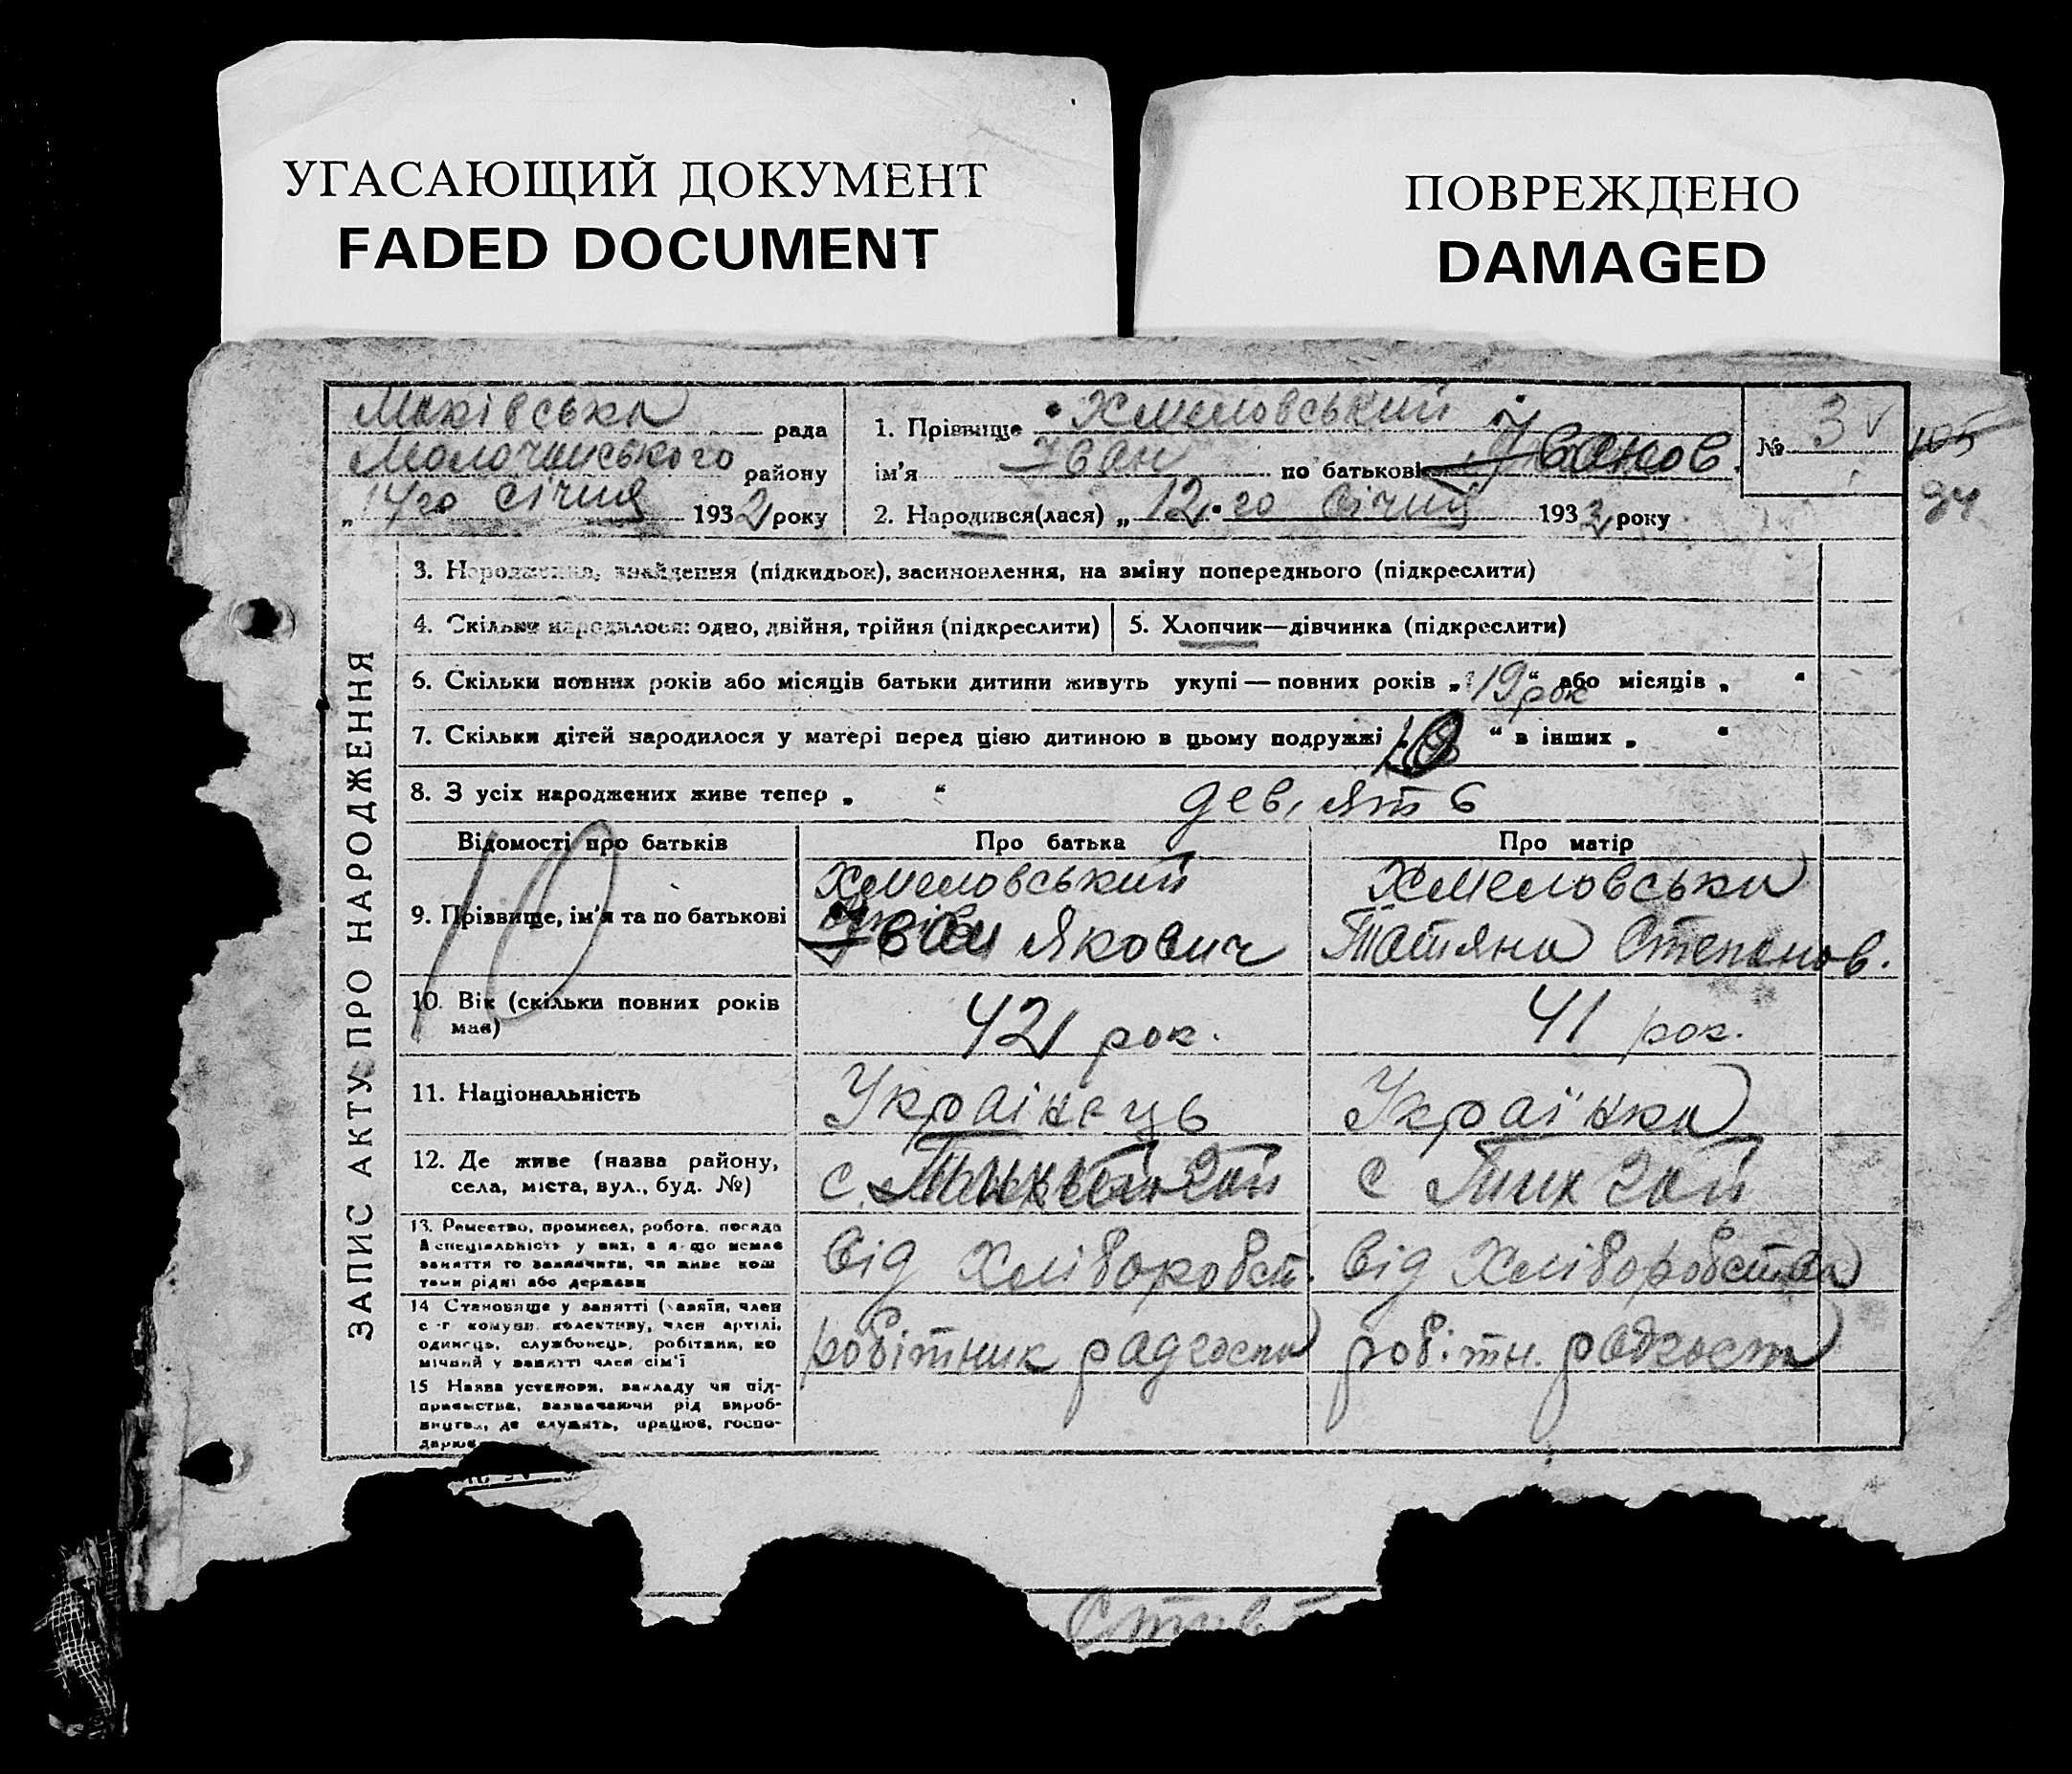 УГАСАЮЩИЙ ДОКУМЕНТ
FADED DOCUMENT
ПОВРЕЖДЕНО
DAMAGED
Маківська рада
Молочанського району
„14го січня 1932 року
1. Прізвище Хмеловський
ім'я Іван по батькові Іванов.
2. Народився(лася) „12го Січня 1932 року
№ 3
105
94
ЗАПИС АКТУ ПРО НАРОДЖЕННЯ
3. Народження, знайдення (підкидьок), засиновлення, на зміну попереднього (підкреслити)
4. Скільки народилося: одно, двійня, трійня (підкреслити)
5. Хлопчик—дівчинка (підкреслити)
6. Скільки повних років або місяців батьки дитини живуть укупі — повних років „19 рок“ або місяців „ “
7. Скільки дітей народилося у матері перед цією дитиною в цьому подружжі „10 “ в інших „ “
8. З усіх народжених живе тепер „ “ дев,ять
10
Відомості про батьків
Про батька
Про матір
9. Прізвище, ім'я та по батькові
Хмеловський
Іван Якович
Хмеловська
Татяна Степанов.
10. Вік (скільки повних років
має)
42 рок.
41 рок.
11. Національність
Українець
Українка
12. Де живе (назва району,
села, міста, вул., буд. №)
с.
с Тих гай
13. Ремество, промисел, робота, посада
й спеціяльність у них, а якщо немає
заняття то зазначити, чи живе кош
тами рідні або держави
Від Хліборобст.
Від Хліборобства
14 Становище у занятті (хазяїн, член
с -г комуни, колективу, член артілі,
одинець, службовець, робітник, по
мічний у занятті член сім'ї
робітник радгоспа
робітн. радгоспа
15 Назва установи, закладу чи під-
приємства, зазначаючи рід вироб-
ництва, де служать, працює, госпо-
дарює